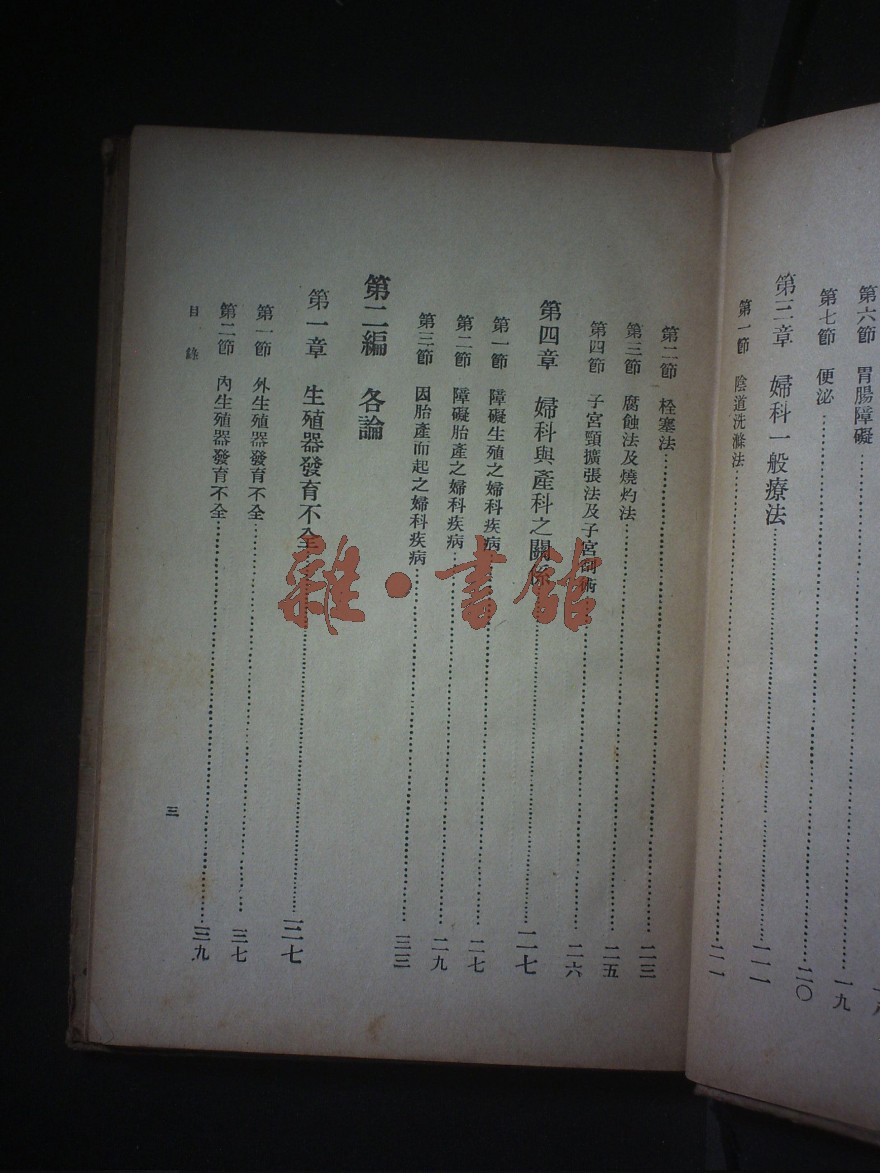 第六節　胃腸障礙
第七節　便泌⋯⋯一九
第三章　婦科一般療法⋯⋯二〇
第一節　陰道洗滌法⋯⋯二一
第二節　栓塞法⋯⋯二三
第三節　腐蝕法及燒灼法⋯⋯二五
第四節　子宮頸擴張法及子宮剖術⋯⋯二六
第四章　婦科與產科之關係⋯⋯二七
第一節　障礙生殖之婦科疾病⋯⋯二七
第二節　障礙胎產之婦科疾病⋯⋯二九
第三節　因胎產而起之婦科疾病⋯⋯三三
第二編　各論
第一章　生殖器發育不全⋯⋯三七
第一節　外生殖器發育不全⋯⋯三七
第二節　內生殖器發育不全⋯⋯三九
目錄
三
雜·書館